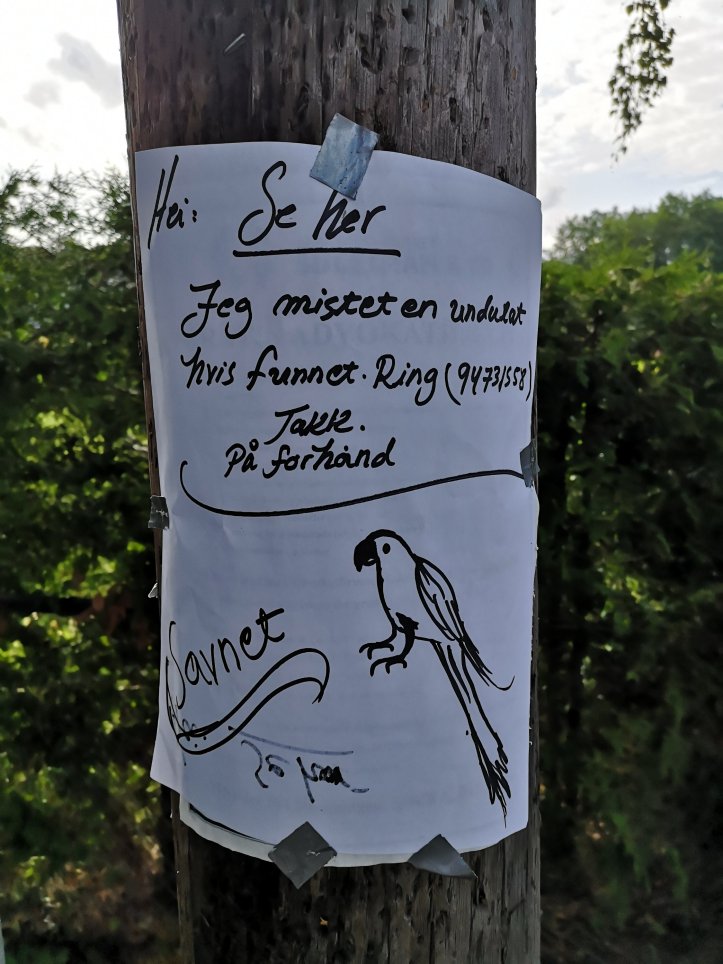 Hei: Se her
Jeg mistet en undulat
hvis funnet. Ring (94731558)
Takk.
På forhånd
Savnet